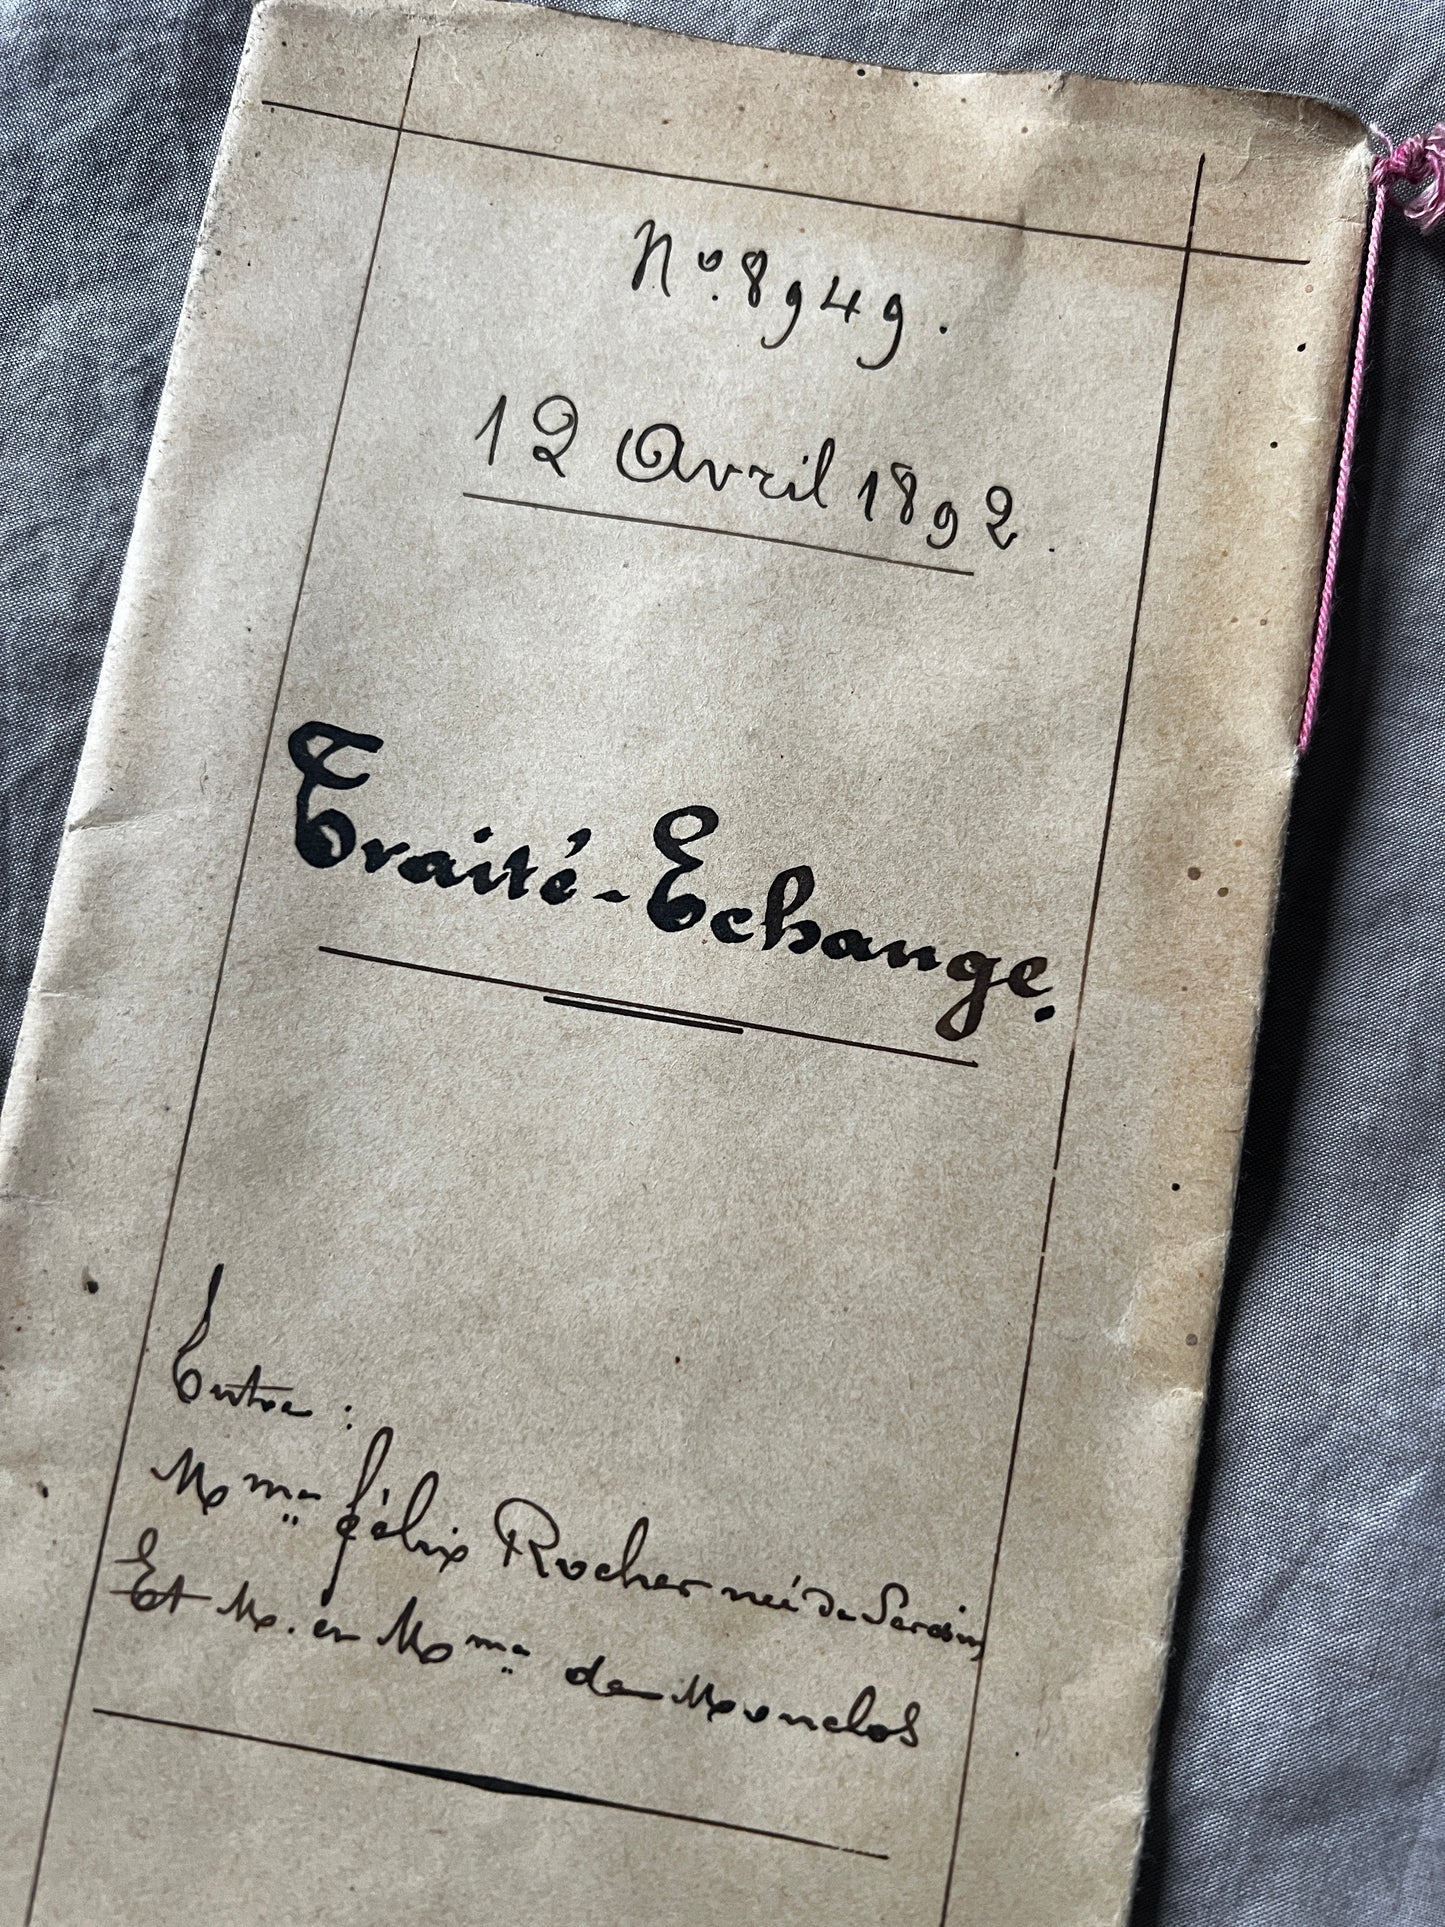 No. 8949.
12 Avril 1892.
Traité-Echange.
Entre :
Mme Félix Rocher née de
Et M. et Mme de Monclos